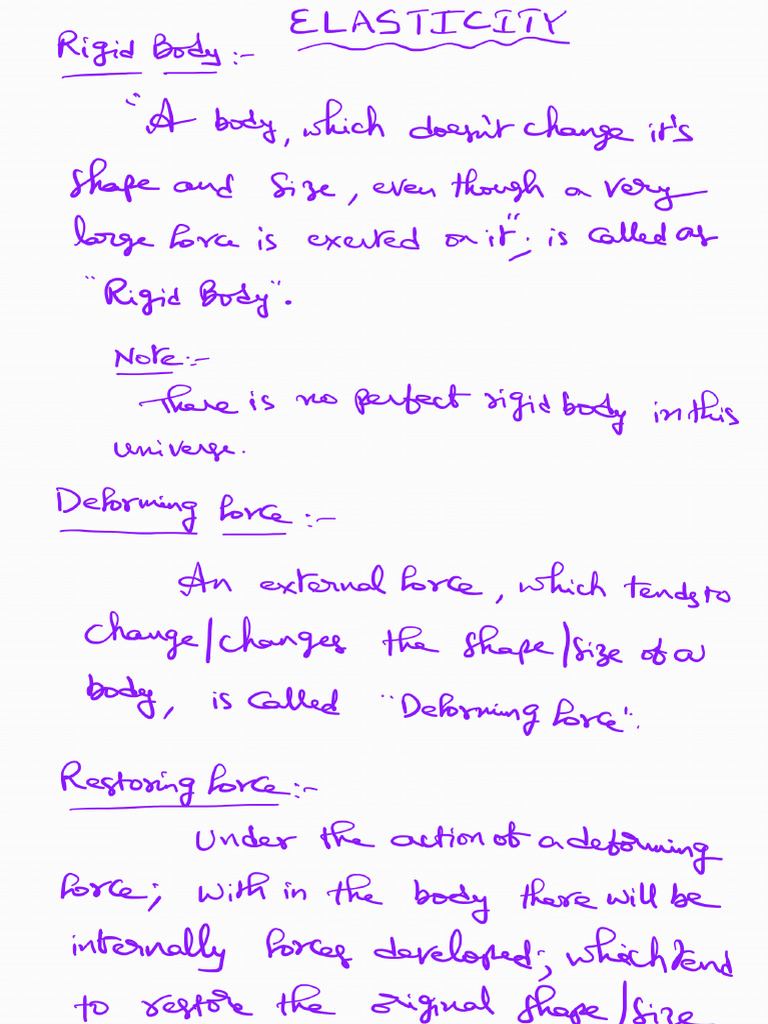 ELASTICITY
Rigid Body :-
"A body, which doesn't change it's
shape and size, even though a very
large force is exerted on it", is called as
"Rigid Body".
Note:-
There is no perfect rigid body in this
universe.
Deforming force :-
An external force, which tends to
change/changes the shape/size of a
body, is called "Deforming force".
Restoring force:-
Under the action of a deforming
force; with in the body there will be
internally forces developed; which tend
to restore the original shape/size